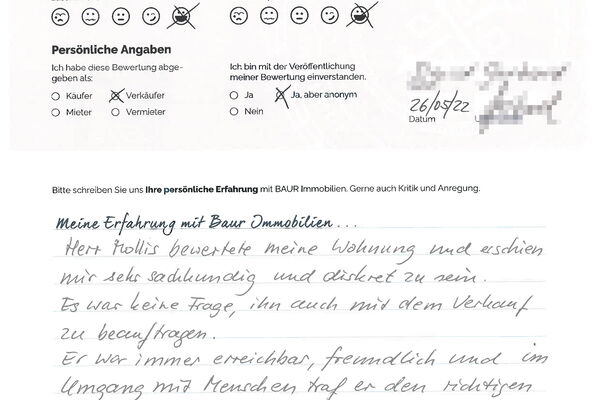 Persönliche Angaben
Ich habe diese Bewertung abge-
geben als:
Käufer
Verkäufer
Mieter
Vermieter
Ich bin mit der Veröffentlichung
meiner Bewertung einverstanden.
Ja
Ja, aber anonym
Nein
26/05/22
Datum
Bitte schreiben Sie uns Ihre persönliche Erfahrung mit BAUR Immobilien. Gerne auch Kritik und Anregung.
Meine Erfahrung mit Baur Immobilien...
Herr Mollis bewertete meine Wohnung und erschien
mir sehr sachkundig und diskret zu sein.
Es war keine Frage, ihn auch mit dem Verkauf
zu beauftragen.
Er war immer erreichbar, freundlich und im
Umgang mit Menschen traf er den richtigen